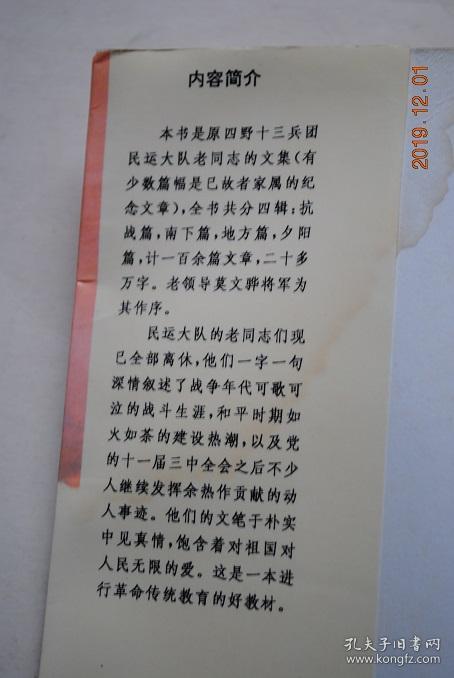 内容简介
本书是原四野十三兵团
民运大队老同志的文集(有
少数篇幅是已故者家属的纪
念文章),全书共分四辑:抗
战篇,南下篇,地方篇,夕阳
篇,计一百余篇文章,二十多
万字。老领导莫文骅将军为
其作序。
民运大队的老同志们现
已全部离休,他们一字一句
深情叙述了战争年代可歌可
泣的战斗生涯,和平时期如
火如荼的建设热潮,以及党
的十一届三中全会之后不少
人继续发挥余热作贡献的动
人事迹。他们的文笔于朴实
中见真情,饱含着对祖国对
人民无限的爱。这是一本进
行革命传统教育的好教材。
2019.12.01
孔夫子旧书网
www.kongfz.com